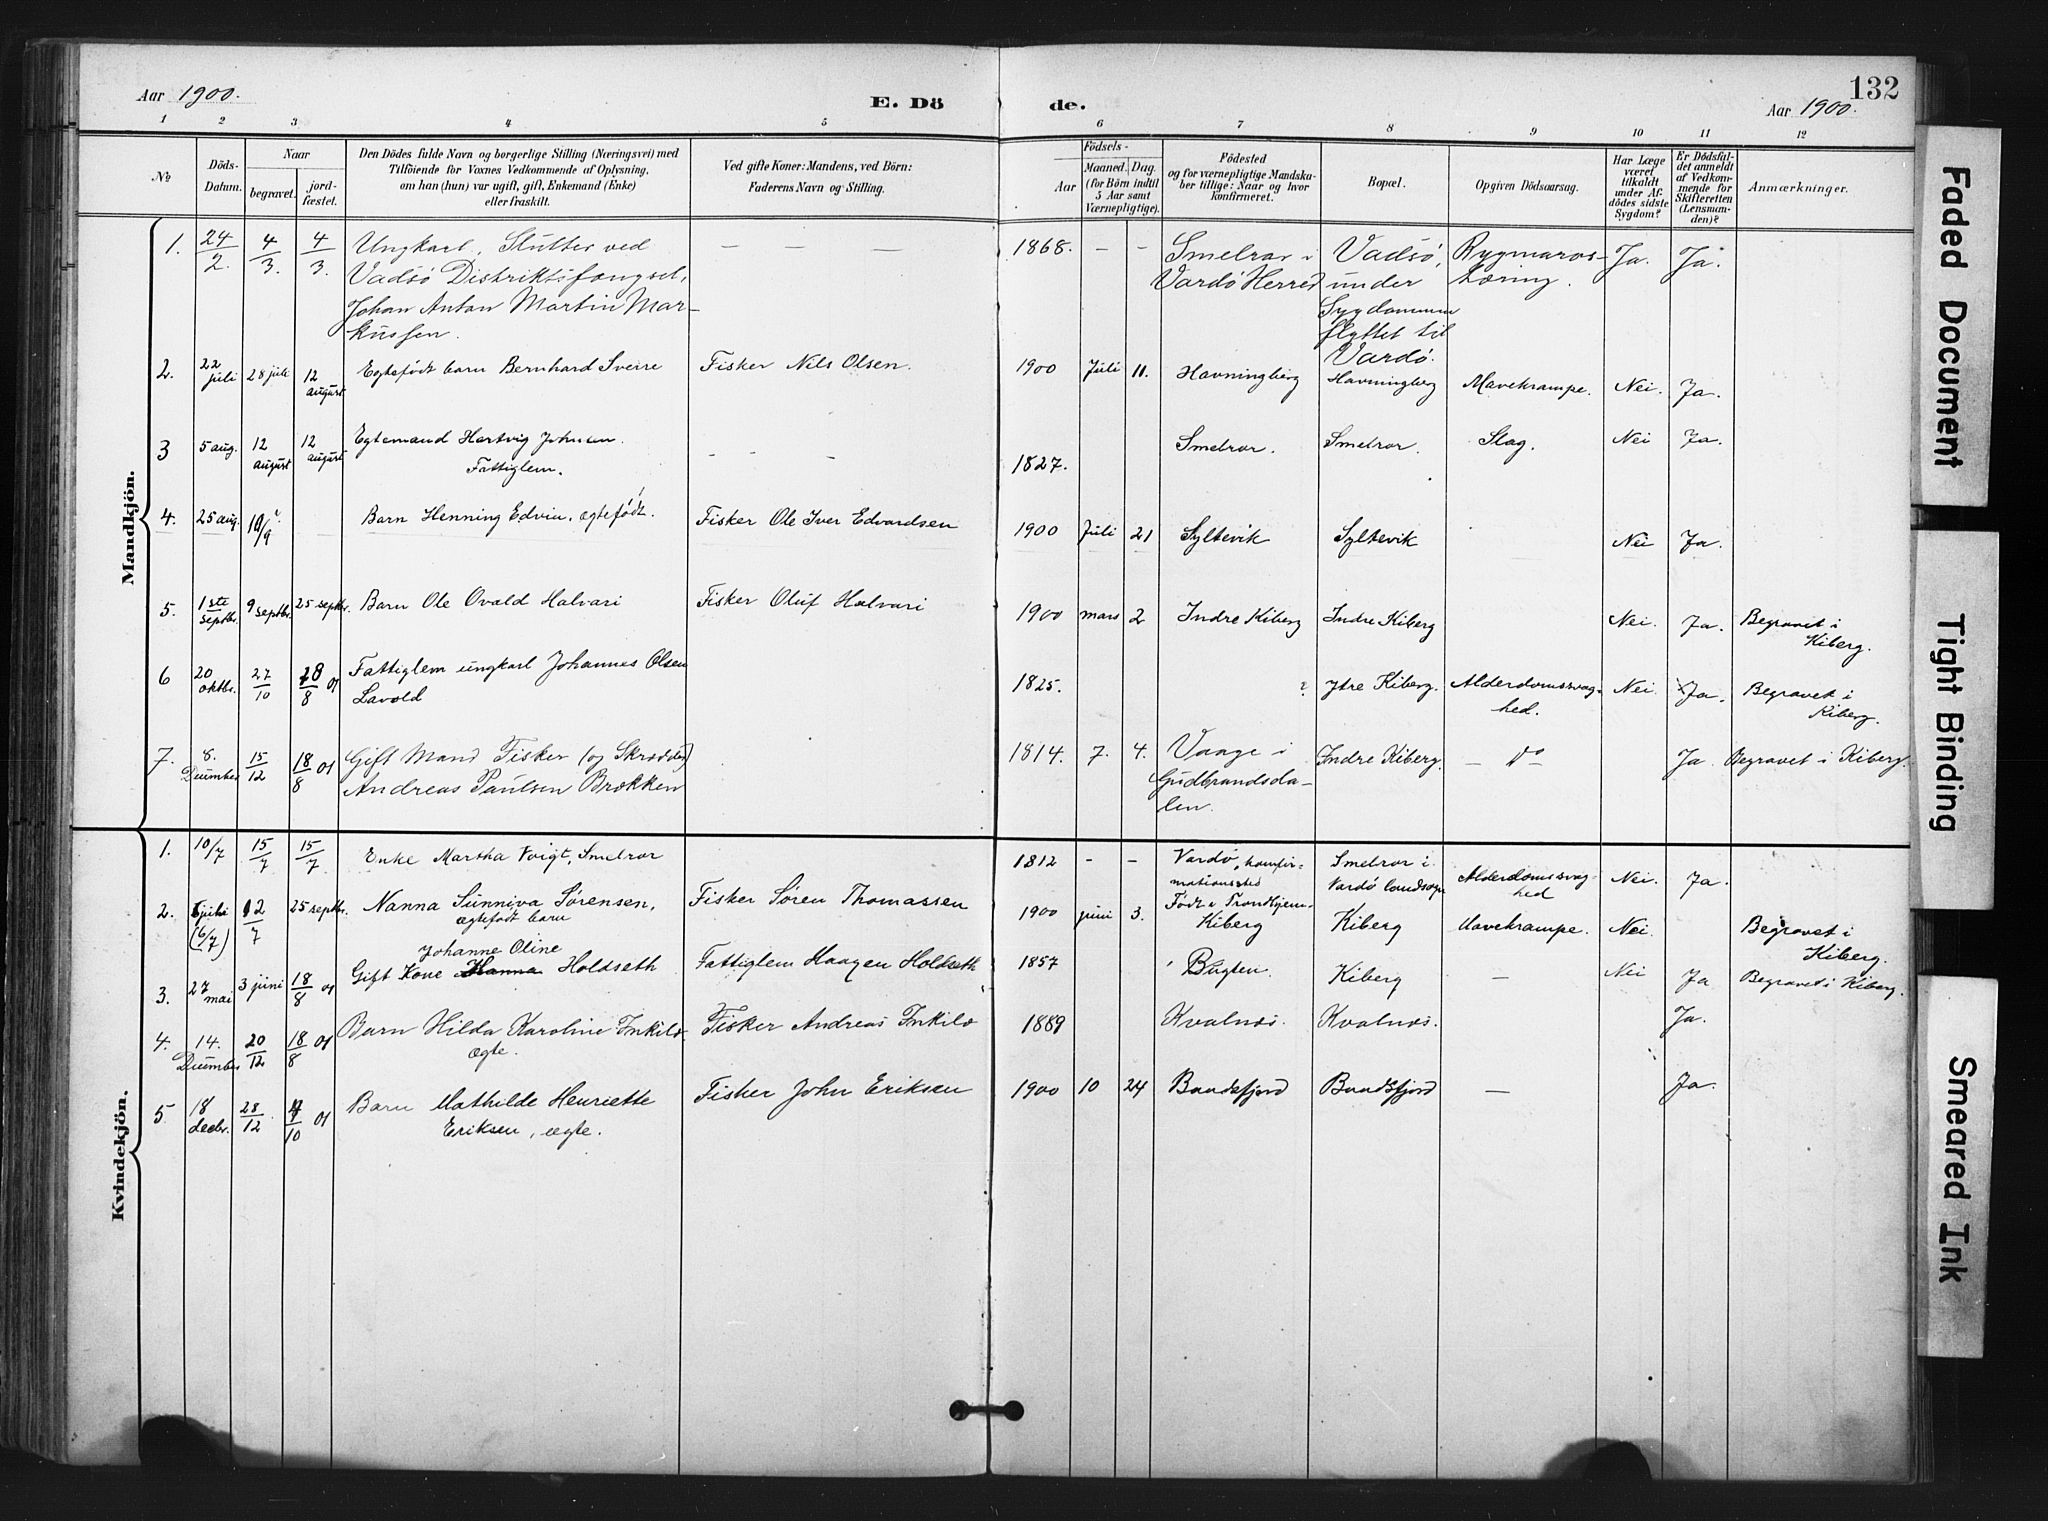 Aar 1900.
E. Dö
de.
132
Aar 1900.
1 2 3 4 5 6 7 8 9 10 11 12
№
Döds-
Datum.
Naar
begravet.
jord-
fæstet.
Den Dödes fulde Navn og borgerlige Stilling (Næringsvei) med
Tilföiende for Voxnes Vedkommende af Oplysning,
om han (hun) var ugift, gift, Enkemand (Enke)
eller fraskilt.
Ved gifte Koner: Mandens, ved Börn:
Faderens Navn og Stilling.
Födsels-
Aar
Maaned.
Dag.
(for Börn indtil
5 Aar samt
Værnepligtige).
Födested
og for værnepligtige Mandska-
ber tillige: Naar og hvor
konfirmeret.
Bopæl.
Opgiven Dödsaarsag.
Har Læge
været
tilkaldt
under Af-
dödes sidste
Sygdom?
Er Dödsfal-
det anmeldt
af Vedkom-
mende for
Skifteretten
(Lensman-
den)?
Anmærkninger.
Mandkjön.
1. 24/2. 4/3. 4/3. Ungkarl, Slutter ved — — — 1868. – – Smelror i Vadsö, Rygmarvs- Ja. Ja.
Vadsö Distriktsfængsel, Vardö Herred under tæring.
Johan Anton Martin Mar- Sygdommen
kussen. flyttet til
Vardö.
2. 22 juli 28 juli 12 august Egtefödt barn Bernhard Sverre Fisker Nils Olsen. 1900 Juli 11. Havningberg Havningberg Mavekrampe. Nei. Ja.
3 5 aug. 12 august 12 august Egtemand Hartvig Johnsen. – – – 1827. Smelror. Smelror. Slag. Nei Ja.
Fattiglem.
4. 25 aug. 10/9 — Barn Henning Edvin, ægtefödt. Fisker Ole Iver Edvardsen 1900 Juli 21 Syltevik Syltevik Nei Ja.
5. 1ste septbr. 9 septbr. 25 septbr. Barn Ole Ovald Halvari Fisker Oluf Halvari 1900 mars 2 Indre Kiberg Indre Kiberg Nei. Ja. Begravet i
Kiberg.
6 20 oktbr. 27/10 18/8 01 Fattiglem ungkarl Johannes Olsen 1825. ? Ytre Kiberg. Alderdomssvag- Nei. Ja. Begravet i
Lavold hed. Kiberg.
7. 8. December 15/12 18/8 01 Gift Mand Fisker (og Skrædder) 1814. 7. 4. Vaage i Indre Kiberg. — Do — Ja. Begravet i Kiberg.
Andreas Paulsen Brækken Gudbrandsda-
len.
Kvindekjön.
1. 10/7 15/7 15/7 Enke Martha Voigt, Smelror 1812 – – Vardö, konfir- Smelror i Alderdomssvag- Nei. Ja.
mationssted Vardö landsogn hed
Födt i Trondhjem.
2. juli (6/7) 12/7 25 septbr. Nanna Sunniva Sørensen, Fisker Søren Thomassen 1900 juni 3. Kiberg Kiberg Mavekrampe. Nei. Begravet i
ægtefödt barn Kiberg.
Johanne Oline
3. 27 mai 3 juni 18/8 01 Gift Kone Hanna Holdseth Fattiglem Haagen Holdseth 1857 Bugten. Kiberg — Nei Ja Begravet i Kiberg.
4. 14. December 20/12 18/8 01 Barn Hilda Karoline Inkilä Fisker Andreas Inkilä 1889 Kvalnæs. Kvalnæs. Ja.
ægte.
5 18 decbr. 28/12 /10 01 Barn Mathilde Henriette Fisker John Eriksen 1900 10 24 Baadsfjord Baadsfjord — Ja.
Eriksen, ægte.
Faded Document
Tight Binding
Smeared Ink